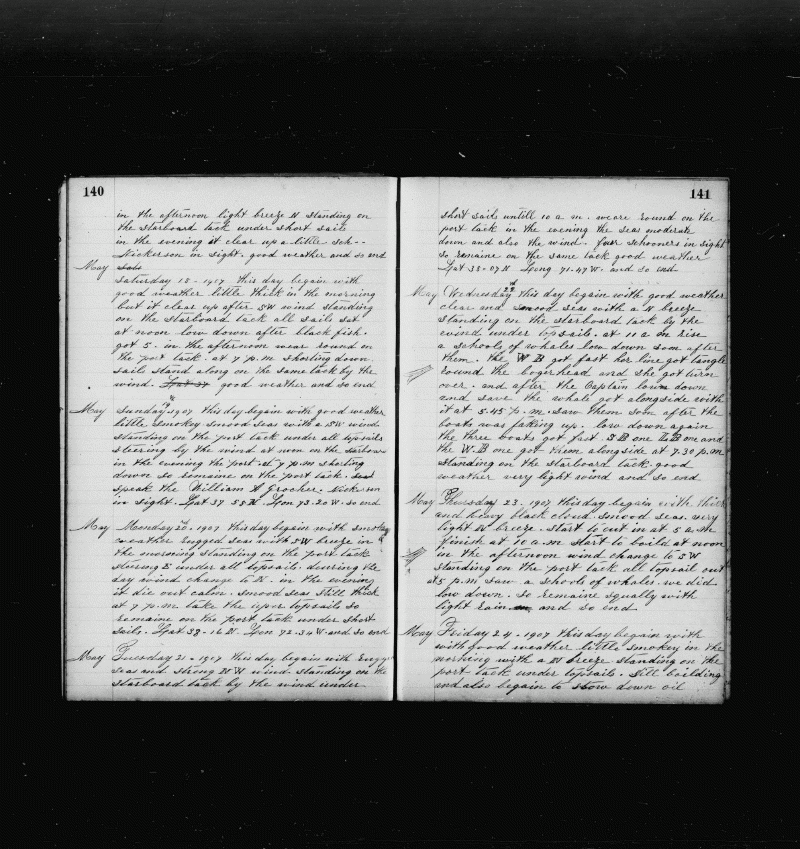 140
in the afternoon light breeze N standing on
the starboard tack under short sails
in the evening it clear up a little Sch--
Nickerson in sight. good weather and so end
May
Saturday 18 - 1907 this day began with
good weather little thick in the morning
but it clear up after SW wind standing
on the starboard tack all sails set
at noon low down after black fish.
got 5. in the afternoon wear round on
the port tack. at 7 p.m shorting down
sails stand along on the same tack by the
wind. good weather and so end
May Sunday 1907 this day begain with good weather
little smokey smood seas with a SW wind
standing on the port tack under all topsails
steering by the wind at noon on the starbow
in the evening the port. at 7 p.m shorting
down so remaine on the port tack.
speak the William A Grocher. Nickerson
in sight. Lat 37 55 N. Lon 73.20 W. so end
May Monday 20. 1907 this day begain with smokey
weather rugged seas with SW breeze in
the morning standing on the port tack
stering E under all topsails. durring the
day wind change to N. in the evening
it die out calm. smood seas still thick
at 7 p.m take the uper topsails so
remaine on the port tack under short
sails. Lat 38-16 N. Lon 72-34 W. and so end
May Tuesday 21 - 1907 this day begain with
seas and strong N W wind. standing on the
starboard tack by the wind under
141
short sails untill 10 a m. weare round on the
port tack in the evening the seas moderate
down and also the wind. four schooners in sight
so remaine on the same tack good weather
Lat 38-07 N Long 71-47 W. and so end
May Wednesday 22nd this day begain with good weather
clear and smood seas with a N breeze
standing on the starboard tack by the
wind under topsails. at 10 a m rise
a schools of whales low down soom after
them. the W B got fast her line got tangle
round the logerhead and she got turn
over. and after the Captain low down
and save the whale got alongside with
it at 5.45 p.m. saw them som after the
boats was faking up. low down again
the three boats got fast S B one L B one and
the W. B one got them alongside at 7.30 p.m
standing on the starboard tack. good
weather very light wind and so end
May Thursday 23. 1907 this day begain with thick
and heavy black cloud. smood seas. very
light N breeze. start to cut in at 5 a.m
finish at 10 a.m start to boild at noon
in the afternoon wind change to SW
standing on the port tack all topsail out
at 5 p.m saw a schools of whales. we did
low down. so remaine squally with
light rain and so end
May Friday 24 - 1907 this day begain with
with good weather little smokey in the
morning with a N breeze standing on the
port tack under topsails. still boilding
and also begain to stow down oil